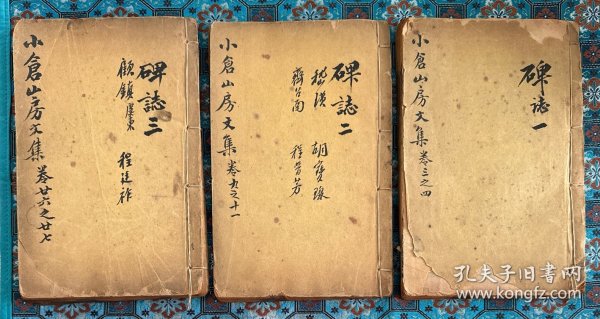 碑誌一
小倉山房文集 卷三之四
碑誌二
嵇璜 胡寶瑔
齊召南 程晉芳
小倉山房文集 卷九之十一
碑誌三
顧鎮 虞東 程廷祚
小倉山房文集 卷廿六之廿七
孔夫子旧书网
www.kongfz.com